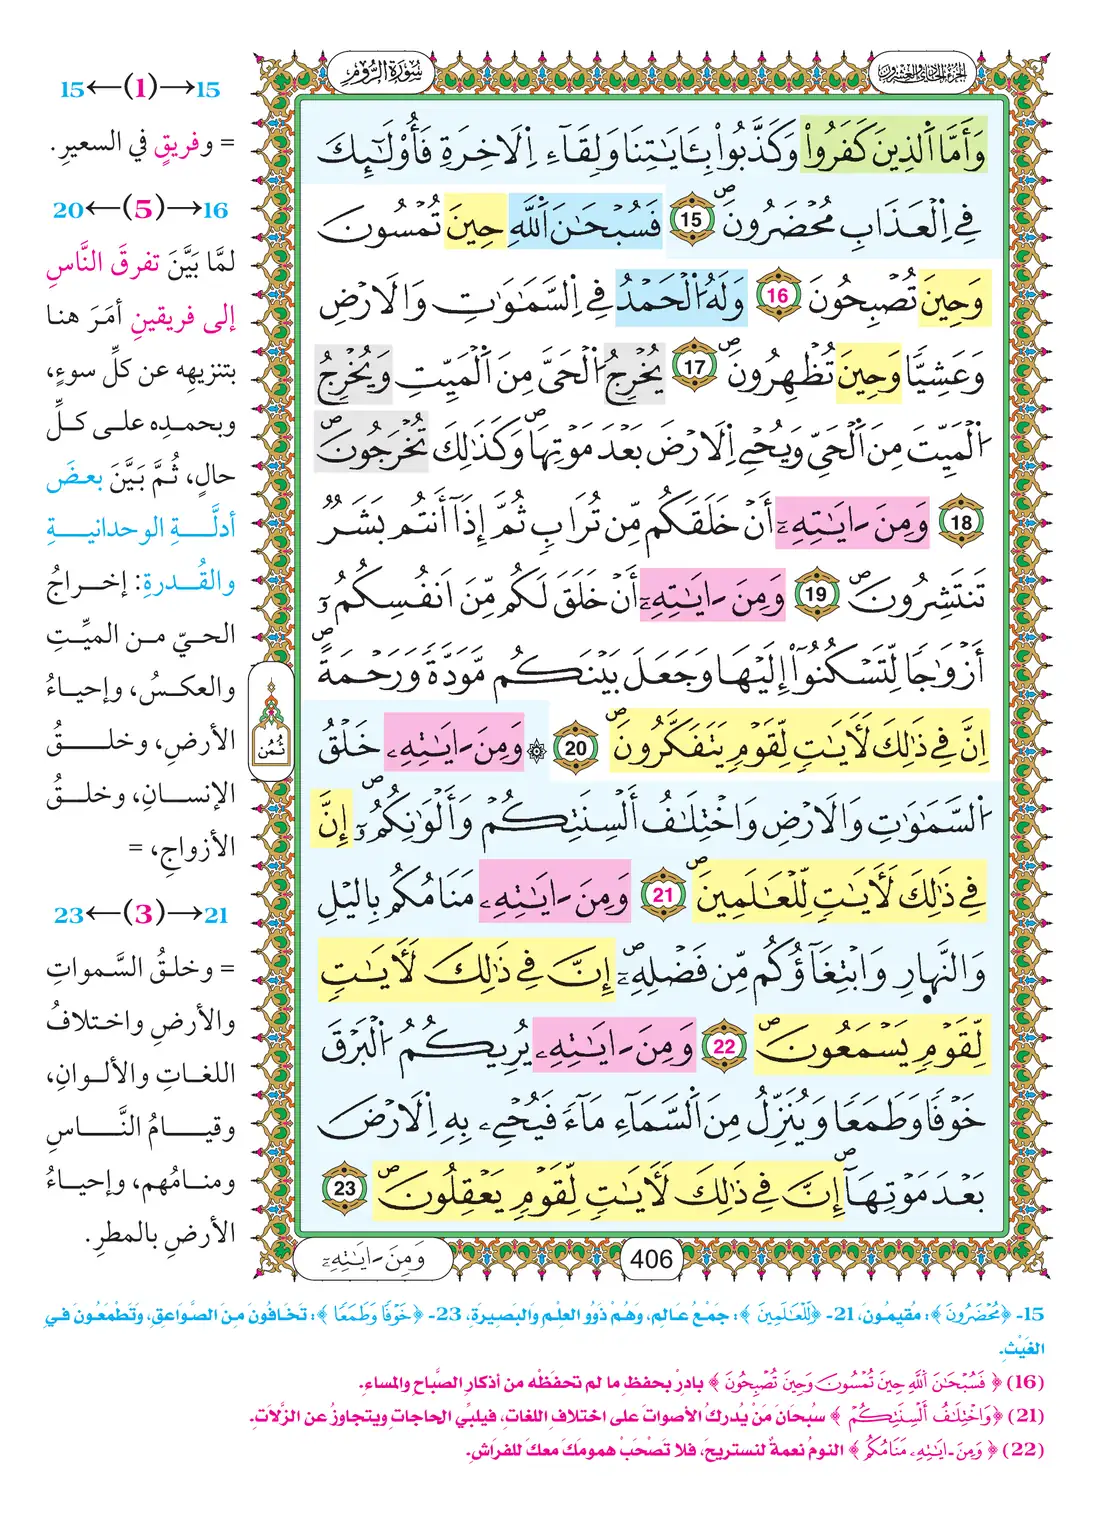 الجزء الحادي والعشرون
سُورَةُ الرُّومِ
وَأَمَّا اَ۬لذِينَ كَفَرُواْ وَكَذَّبُواْ بِـَٔايَٰتِنَا وَلِقَآءِ اِ۬لَاخِرَةِ فَأُوْلَٰٓئِكَ
فِے اِ۬لْعَذَابِ مُحْضَرُونَۖ 15 فَسُبْحَٰنَ اَ۬للَّهِ حِينَ تُمْسُونَ
وَحِينَ تُصْبِحُونَ 16 وَلَهُ اُ۬لْحَمْدُ فِے اِ۬لسَّمَٰوَٰتِ وَالَارْضِ
وَعَشِيّٗا وَحِينَ تُظْهِرُونَۖ 17 يُخْرِجُ اُ۬لْحَيَّ مِنَ اَ۬لْمَيِّتِ وَيُخْرِجُ
اُ۬لْمَيِّتَ مِنَ اَ۬لْحَيِّ وَيُحْيِ اِ۬لَارْضَ بَعْدَ مَوْتِهَاۖ وَكَذَٰلِكَ تُخْرَجُونَۖ
18 وَمِنَ اٰيَٰتِهِۦٓ أَنْ خَلَقَكُم مِّن تُرَابٖ ثُمَّ إِذَآ أَنتُم بَشَرٞ
تَنتَشِرُونَۖ 19 وَمِنَ اٰيَٰتِهِۦٓ أَنْ خَلَقَ لَكُم مِّنَ اَنفُسِكُمُۥٓ
أَزْوَٰجٗا لِّتَسْكُنُوٓاْ إِلَيْهَا وَجَعَلَ بَيْنَكُم مَّوَدَّةٗ وَرَحْمَةًۖ
اِنَّ فِے ذَٰلِكَ لَأٓيَٰتٖ لِّقَوْمٖ يَتَفَكَّرُونَۖ 20 ۞ وَمِنَ اٰيَٰتِهِۦ خَلْقُ
اُ۬لسَّمَٰوَٰتِ وَالَارْضِ وَاخْتِلَٰفُ أَلْسِنَتِكُمْ وَأَلْوَٰنِكُمُۥٓۖ إِنَّ
فِے ذَٰلِكَ لَأٓيَٰتٖ لِّلْعَٰلَمِينَۖ 21 وَمِنَ اٰيَٰتِهِۦ مَنَامُكُم بِاليْلِ
وَالنَّه۪ارِ وَابْتِغَآؤُكُم مِّن فَضْلِهِۦٓۖ إِنَّ فِے ذَٰلِكَ لَأٓيَٰتٖ
لِّقَوْمٖ يَسْمَعُونَۖ 22 وَمِنَ اٰيَٰتِهِۦ يُرِيكُمُ اُ۬لْبَرْقَ
خَوْفٗا وَطَمَعٗا وَيُنَزِّلُ مِنَ اَ۬لسَّمَآءِ مَآءٗ فَيُحْيِۦ بِهِ اِ۬لَارْضَ
بَعْدَ مَوْتِهَآۖ إِنَّ فِے ذَٰلِكَ لَأٓيَٰتٖ لِّقَوْمٖ يَعْقِلُونَۖ 23
406
وَمِنَ اٰيَٰتِهِۦٓ
ثُمُن
15←(1)→15
= وفريقٍ في السعيرِ.
20←(5)→16
لمَّا بَيَّنَ تفرقَ النَّاسِ
إلى فريقينِ أمَرَ هنا
بتنزيهِه عن كلِّ سوءٍ،
وبحمدِه على كلِّ
حالٍ، ثُمَّ بَيَّنَ بعضَ
أدلَّةِ الوحدانيةِ
والقُدرةِ: إخراجُ
الحيّ من الميِّتِ
والعكسُ، وإحياءُ
الأرضِ، وخلقُ
الإنسانِ، وخلقُ
الأزواجِ، =
23←(3)→21
= وخلقُ السَّمواتِ
والأرضِ واختلافُ
اللغاتِ والألوانِ،
وقيامُ النَّاسِ
ومنامُهم، وإحياءُ
الأرضِ بالمطرِ.
15- ﴿مُحْضَرُونَ﴾: مُقِيمُونَ، 21- ﴿لِّلْعَٰلَمِينَ﴾: جَمْعُ عَالِمٍ، وَهُمْ ذَوُو العِلْمِ وَالبَصِيرَةِ، 23- ﴿خَوْفٗا وَطَمَعٗا﴾: تَخَافُونَ مِنَ الصَّوَاعِقِ، وَتَطْمَعُونَ فِي
الغَيْثِ.
(16) ﴿فَسُبْحَٰنَ اَ۬للَّهِ حِينَ تُمْسُونَ وَحِينَ تُصْبِحُونَ﴾ بادرْ بحفظِ ما لم تحفَظْه من أذكارِ الصَّباحِ والمساءِ.
(21) ﴿وَاخْتِلَٰفُ أَلْسِنَتِكُمْ﴾ سبُحَانَ مَنْ يُدركُ الأصواتَ على اختلافِ اللغات، فيلبِّي الحاجات ويتجاوزُ عن الزَّلات.
(22) ﴿وَمِنَ اٰيَٰتِهِۦ مَنَامُكُم﴾ النومُ نعمةٌ لنستريحَ، فلا تَصْحَبْ همومَكَ معكَ للفراشِ.